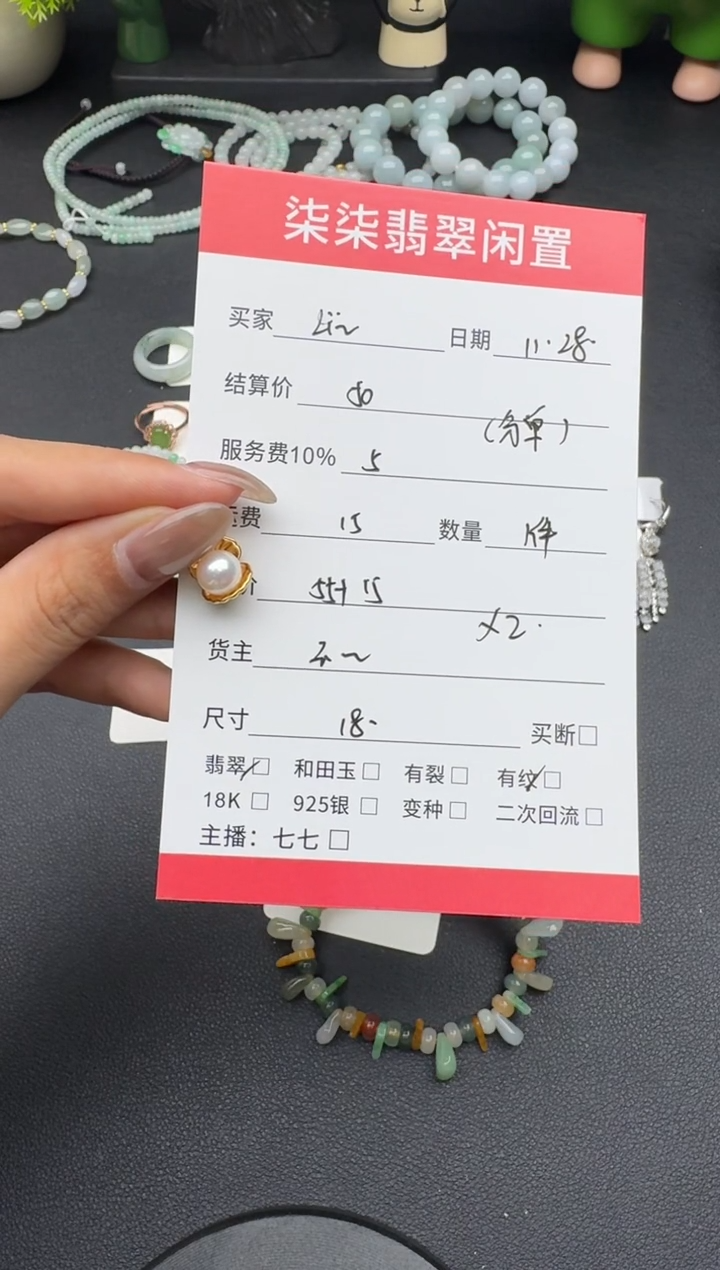 柒柒翡翠闲置
买家 Lin 日期 11.28
结算价 50 (分单)
服务费10% 5
费 15 数量 1件
价 55+15 x2.
货主
尺寸 18. 买断□
翡翠□ 和田玉□ 有裂□ 有纹□
18K□ 925银□ 变种□ 二次回流□
主播：七七□